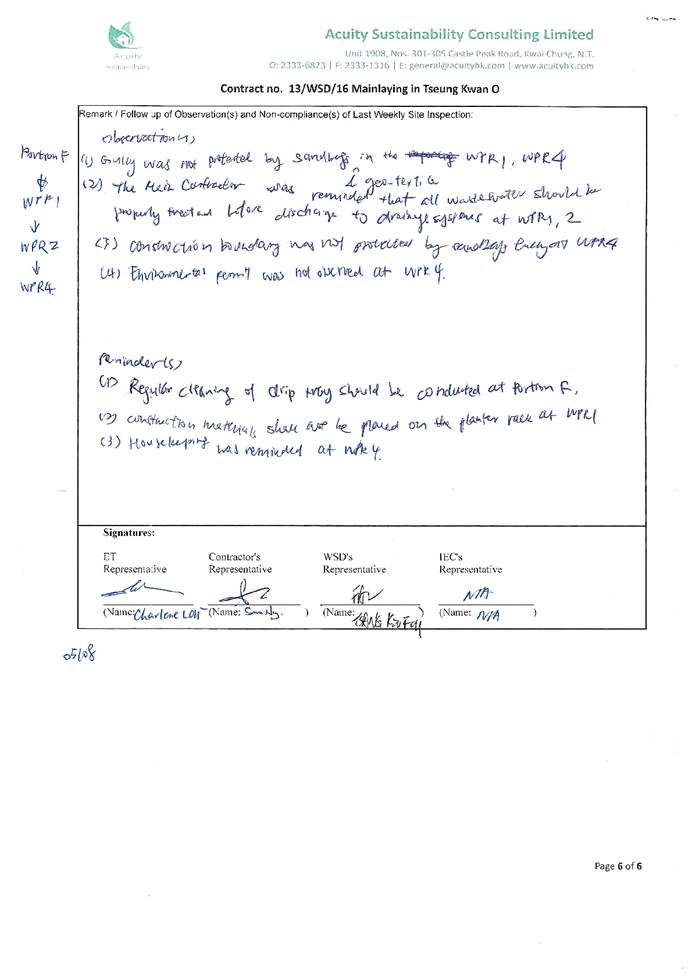 Acuity Sustainability Consulting Limited
Unit 1908, Nos. 301-305 Castle Peak Road, Kwai Chung, N.T.
O: 2333-6823 | F: 2333-1316 | E: general@acuityhk.com | www.acuityhk.com
Acuity
Contract no. 13/WSD/16 Mainlaying in Tseung Kwan O
Remark / Follow up of Observation(s) and Non-compliance(s) of Last Weekly Site Inspection:
Observation(s)
Portion F
↓
WPR1
↓
WPR2
↓
WPR4
(1) Gully was not protected by sandbags in the WPR1, WPR4
& geo-textile
(2) The Main Contractor was reminded that all wastewater should be
properly treated before discharge to drainage systems at WPR1, 2
(3) Construction boundary was not protected by sandbags WPR4
(4) Environmental permit was not observed at WPR4.
Reminder(s)
(1) Regular cleaning of drip tray should be conducted at Portion F.
(2) construction materials shall not be placed on the planter at WPR1
(3) Housekeeping was reminded at WPR4.
Signatures:
ET Representative
Contractor's Representative
WSD's Representative
IEC's Representative
N/A
(Name: Charlene (Name: ) (Name: ) (Name: N/A )
05/08
Page 6 of 6